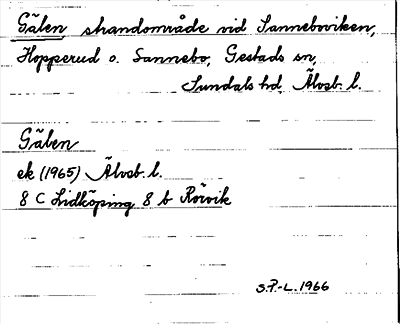 Gälen, strandområde vid Sanneboviken,
Hopperud o. Sannebo, Gestads sn,
Sundals hd, Älvsb. l.
Gälen
ek (1965) Älvsb. l.
8 C Lidköping 8 b Rörvik
S.P.-L. 1966